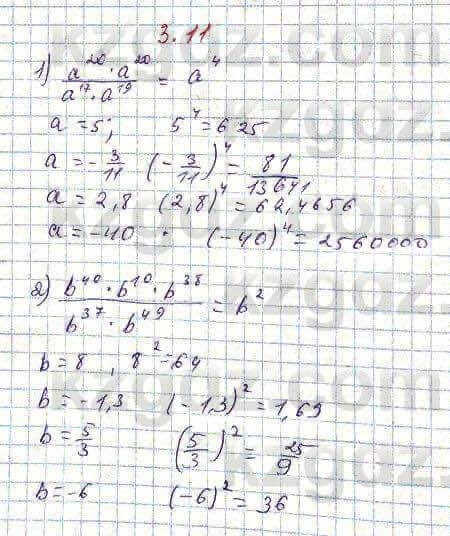 3.11
1) a²⁰·a²⁰ / a¹⁷·a¹⁹ = a⁴
a = 5; 5⁴ = 625
a = -3/11 (-3/11)⁴ = 81/13641
a = 2,8 (2,8)⁴ = 62,4656
a = -40 · (-40)⁴ = 2560000
2) b⁴⁰·b¹⁰·b³⁸ / b³⁷·b⁴⁹ = b²
b = 8, 8² = 64
b = -1,3 (-1,3)² = 1,69
b = 5/3 (5/3)² = 25/9
b = -6 (-6)² = 36